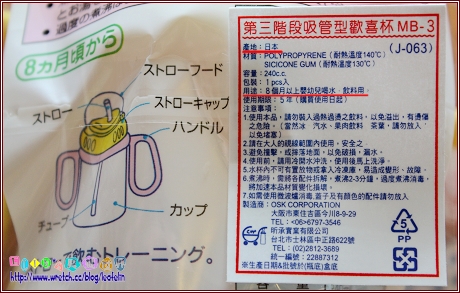 8ヵ月頃から
ストローフード
ストロー
ストローキャップ
ハンドル
チューブ
カップ
飲むトレーニング。
http://www.wretch.cc/blog/keofein
第三階段吸管型歡喜杯 MB-3
產地:日本
(J-063)
材質:POLYPROPYRENE(耐熱溫度140℃)
SICICONE GUM(耐熱溫度130℃)
容量:240c.c.
包裝:1pcs入
用途:8個月以上嬰幼兒喝水、飲料用
使用期限:5年(購買使用日起)
注意事項:
1.使用本品,請勿裝入過熱過燙之飲料,以免溢出,有燙傷
之危險。(當然冰、汽水、果肉飲料、茶葉,請勿放入,
以免堵塞)
2.請在大人的視線範圍內使用,安全之。
3.避免撞擊,或摔落地面,以免破損,漏水。
4.使用前,請用冷開水沖洗,使用後馬上洗淨。
5.水杯內不可有置放物或拿入冷凍庫,易造成變形、故障。
6.煮沸時,需將各配件拆解,煮沸2-3分鐘,過度煮沸消毒,
將加速本品材質變化損壞。
7.如需使用微波爐消毒,蓋子及有顏色的配件請勿放入
製造商:OSK CORPORATION
大阪市東住吉區今川8-9-29
TEL:<06>6797-3546
昕承實業有限公司
台北市士林區中正路622號
TEL:(02)2812-3689
統一編號:22887312
※生產日期&批號於(瓶底)盒底
5
PP